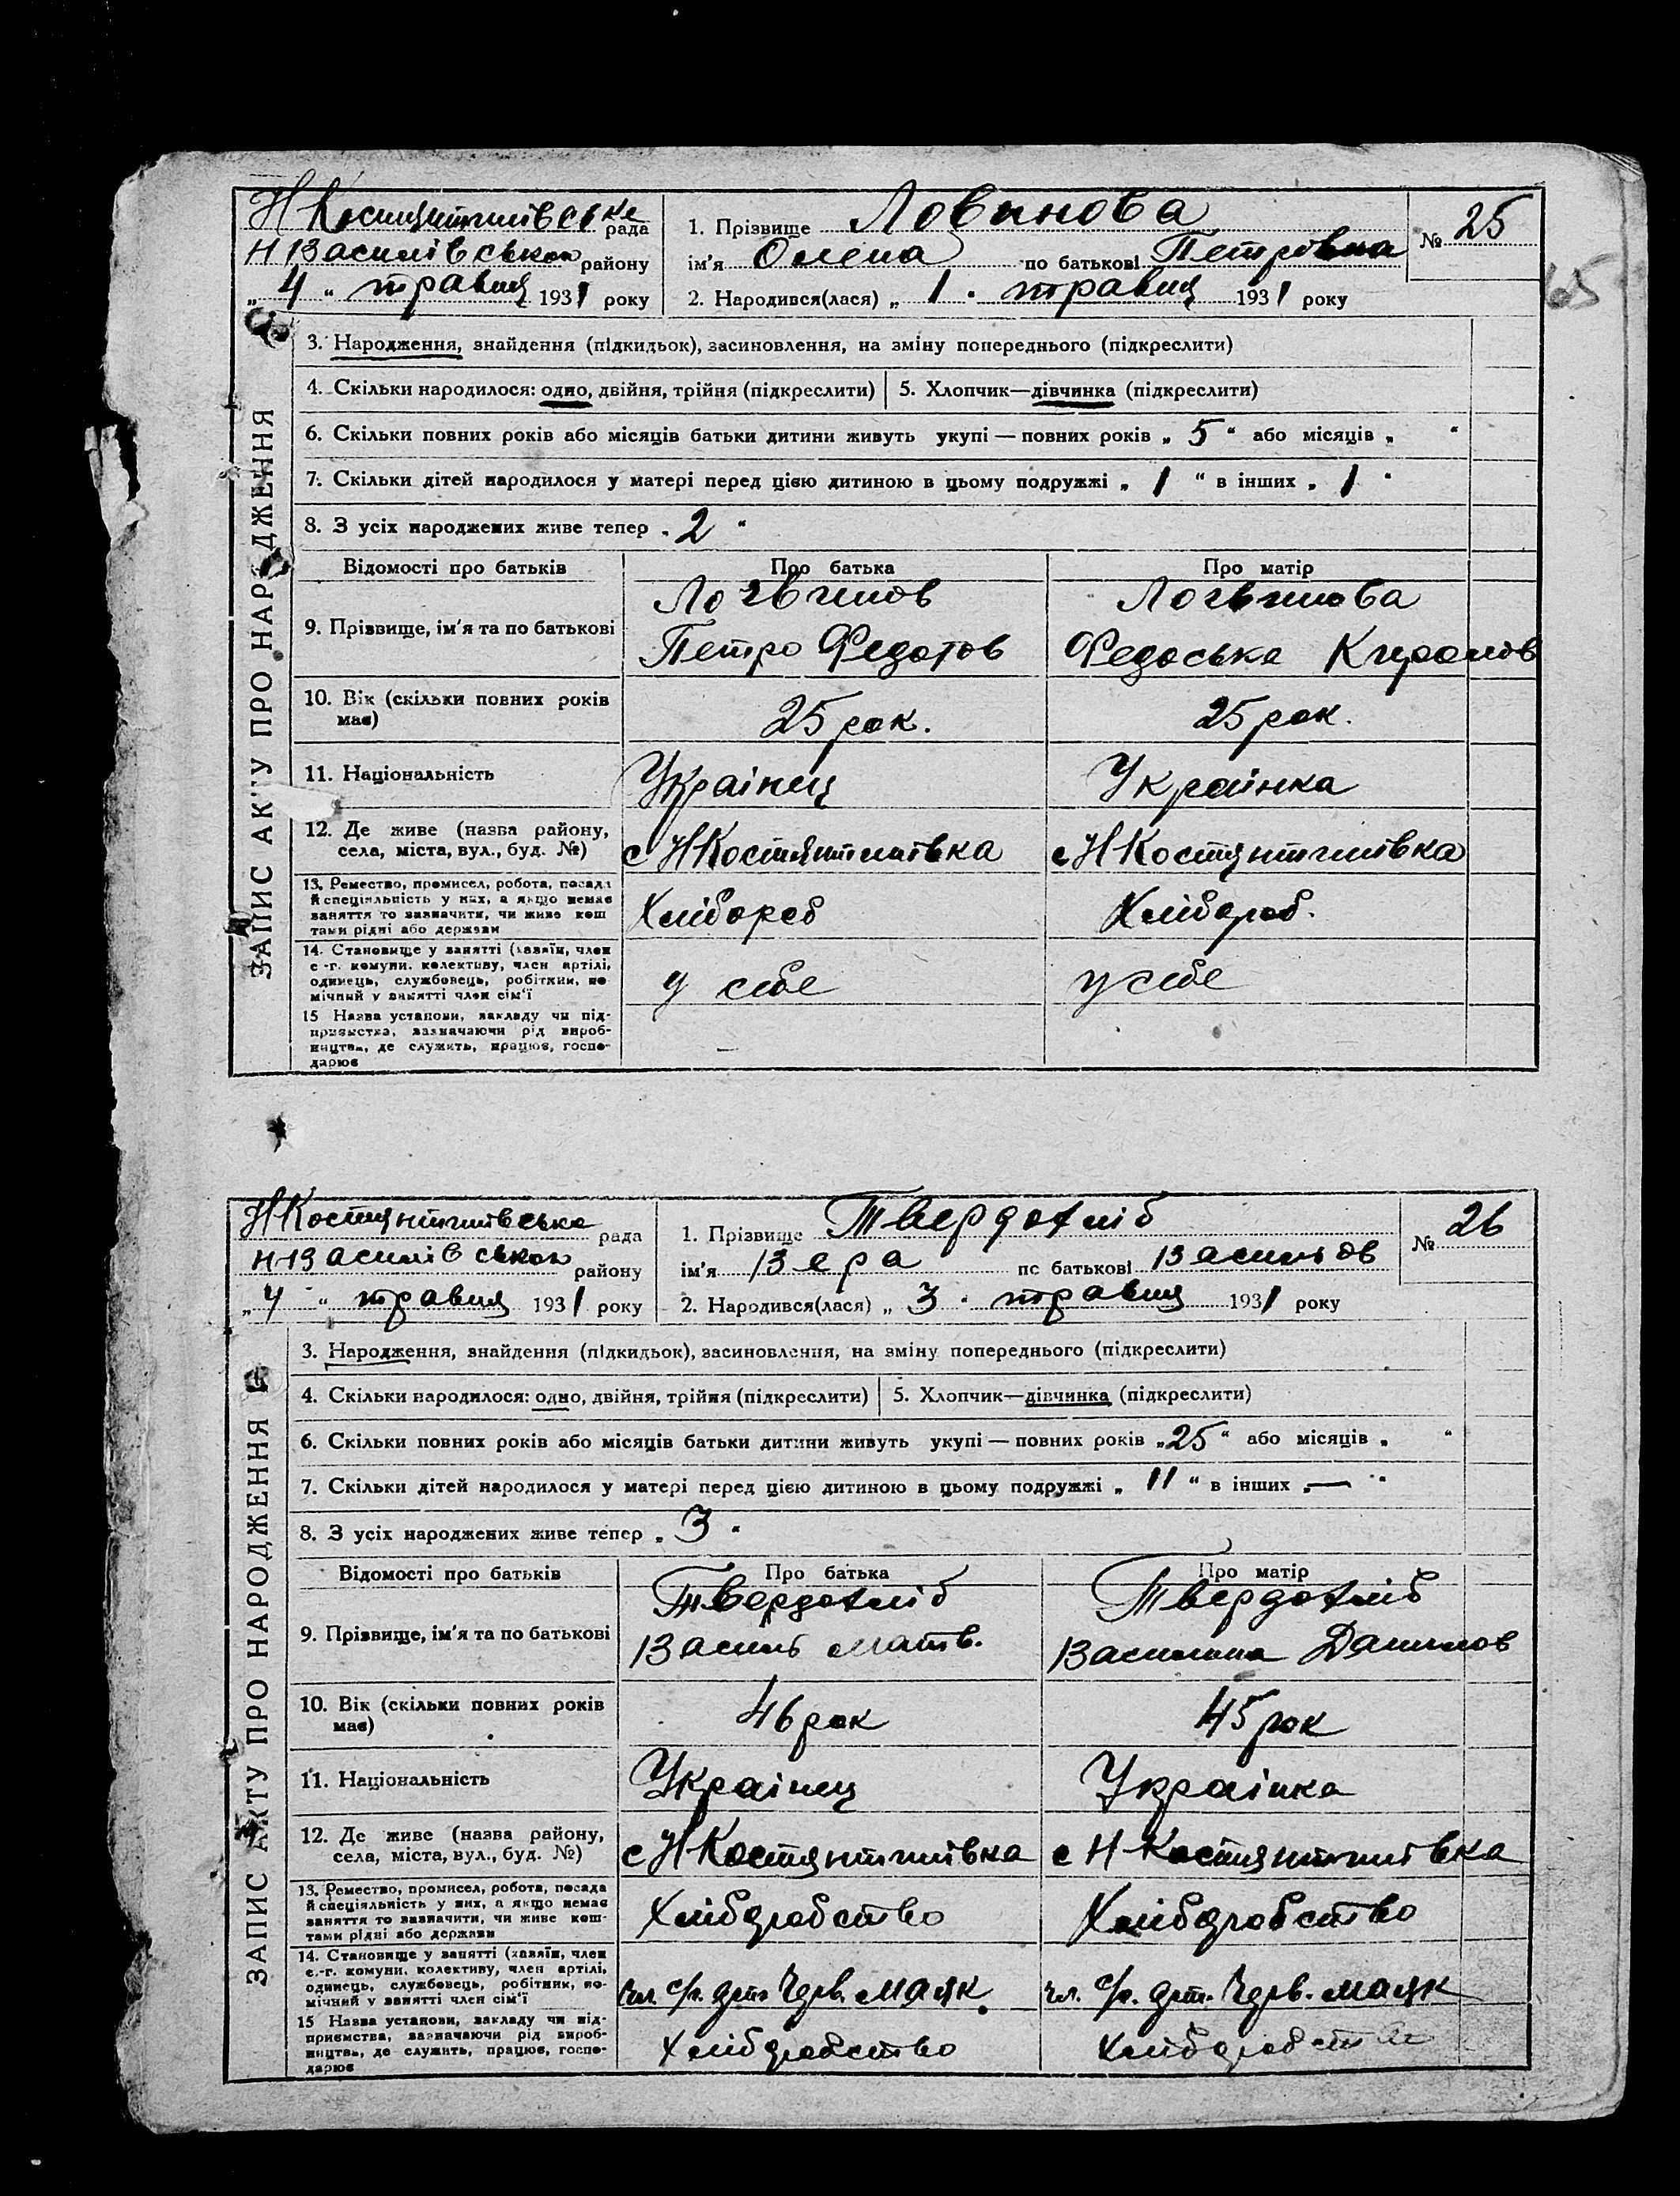 Н Костянтинівська рада
Н Василівськом району
„ 4 “ травня 1931 року
1. Прізвище Ловинова
ім'я Олена по батькові Петровна
2. Народився(лася) „ 1 " травня 1931 року
№ 25
65
ЗАПИС АКТУ ПРО НАРОДЖЕННЯ
3. Народження, знайдення (підкидьок), засиновлення, на зміну попереднього (підкреслити)
4. Скільки народилося: одно, двійня, трійня (підкреслити) 5. Хлопчик—дівчинка (підкреслити)
6. Скільки повних років або місяців батьки дитини живуть укупі — повних років „ 5 “ або місяців „ “
7. Скільки дітей народилося у матері перед цією дитиною в цьому подружжі „ 1 “ в інших „ 1 “
8. З усіх народжених живе тепер „ 2 “
Відомості про батьків Про батька Про матір
9. Прізвище, ім'я та по батькові
Логвинов
Петро Федотов
Логвинова
Федоська Киронов
10. Вік (скільки повних років
має)
25 рок. 25 рок.
11. Національність Українец Українка
12. Де живе (назва району,
села, міста, вул., буд. №)
с Н Костянтинівка с Н Костянтинівка
13. Ремество, промисел, робота, посада
й спеціяльність у них, а якщо немає
заняття то зазначити, чи живе кош
тами рідні або держави
Хлібороб Хлібороб.
14. Становище у занятті (хазяїн, член
с.-г. комуни, колективу, член артілі,
одинець, службовець, робітник, по
мічний у занятті член сім'ї
у себе у себе
15 Назва установи, закладу чи під-
приємства, зазначаючи рід вироб-
ництва, де служить, працює, госпо-
дарює
—
Н Костянтинівська рада
Н Василівськом району
„ 4 “ травня 1931 року
1. Прізвище Твердохліб
ім'я Вера по батькові Васильов
2. Народився(лася) „ 3 " травня 1931 року
№ 26
ЗАПИС АКТУ ПРО НАРОДЖЕННЯ
3. Народження, знайдення (підкидьок), засиновлення, на зміну попереднього (підкреслити)
4. Скільки народилося: одно, двійня, трійня (підкреслити) 5. Хлопчик—дівчинка (підкреслити)
6. Скільки повних років або місяців батьки дитини живуть укупі — повних років „ 25 “ або місяців „ “
7. Скільки дітей народилося у матері перед цією дитиною в цьому подружжі „ 11 “ в інших „ — “
8. З усіх народжених живе тепер „ 3 “
Відомості про батьків Про батька Про матір
9. Прізвище, ім'я та по батькові
Твердохліб
Василь Матв.
Твердохліб
Василина Данилов
10. Вік (скільки повних років
має)
46 рок 45 рок
11. Національність Українец Українка
12. Де живе (назва району,
села, міста, вул., буд. №)
с Н Костянтинівка с Н Костянтинівка
13. Ремество, промисел, робота, посада
й спеціяльність у них, а якщо немає
заняття то зазначити, чи живе кош-
тами рідні або держави
Хліборобство Хліборобство
14. Становище у занятті (хазяїн, член
с.-г. комуни, колективу, член артілі,
одинець, службовець, робітник, по-
мічний у занятті член сім'ї
чл. с/г. арт. Черв. маяк. чл. с/г. арт. Черв. маяк
15 Назва установи, закладу чи під-
приємства, зазначаючи рід вироб-
ництва, де служить, працює, госпо-
дарює
Хліборобство Хліборобство